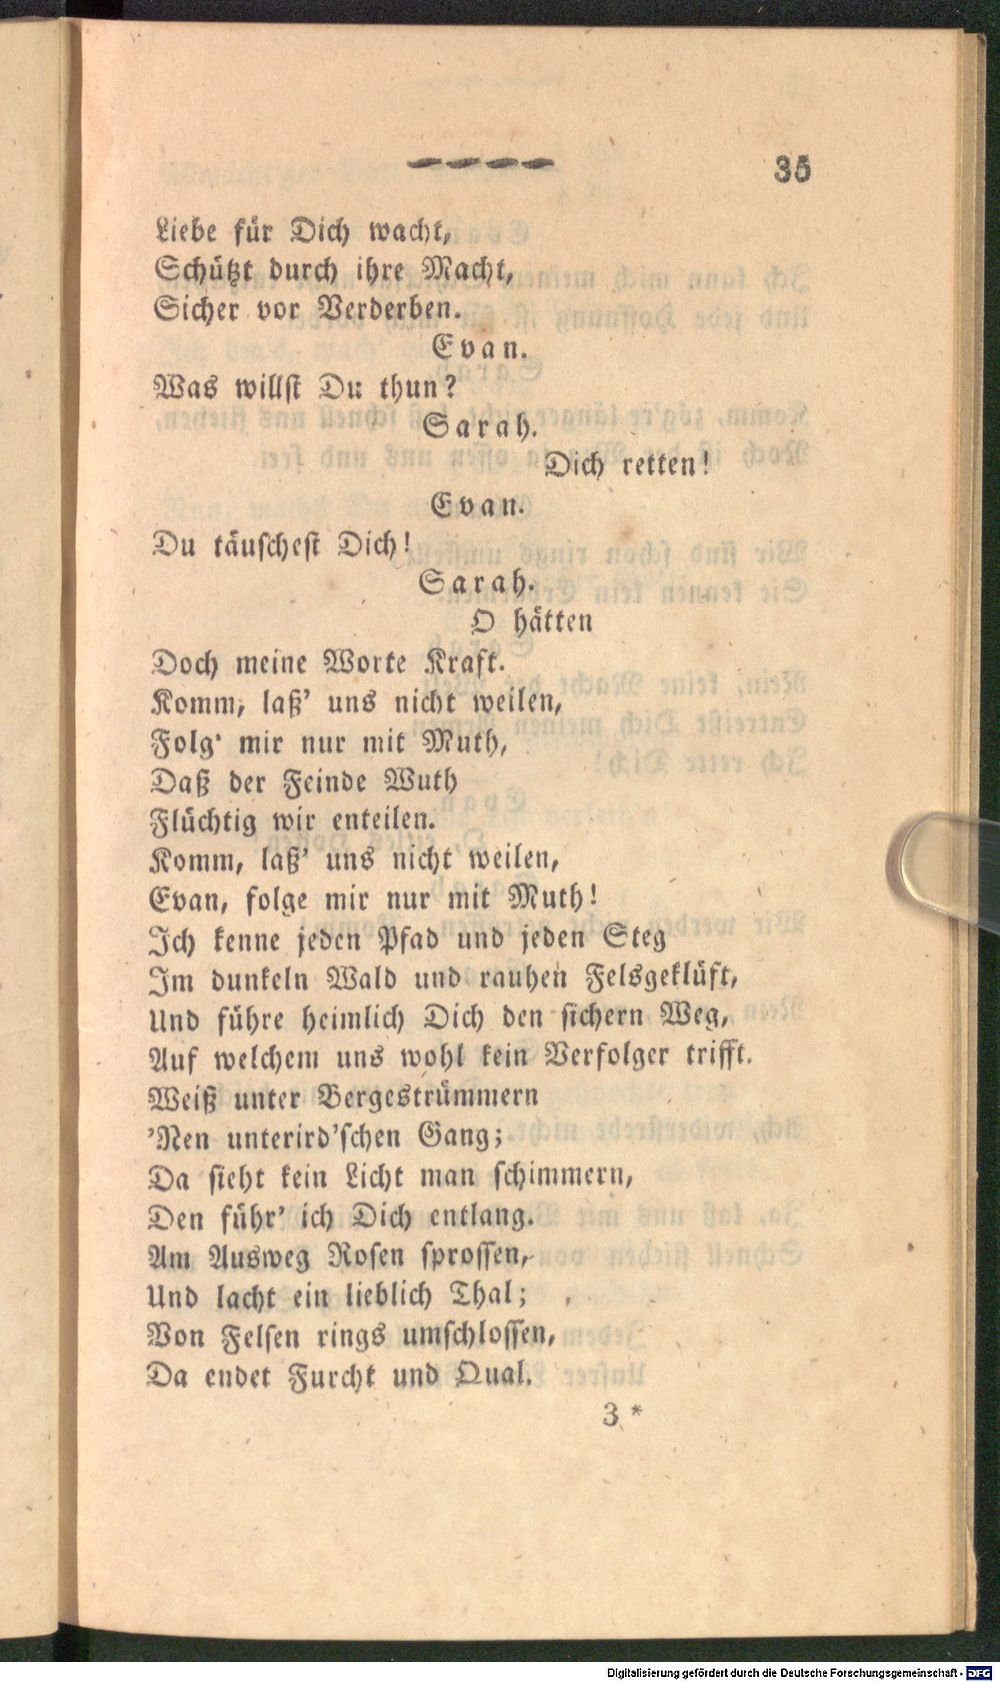 35
Liebe für Dich wacht,
Schützt durch ihre Macht,
Sicher vor Verderben.
Evan.
Was willst Du thun?
Sarah.
Dich retten!
Evan.
Du täuschest Dich!
Sarah.
O hätten
Doch meine Worte Kraft.
Komm, laß' uns nicht weilen,
Folg' mir nur mit Muth,
Daß der Feinde Wuth
Flüchtig wir enteilen.
Komm, laß' uns nicht weilen,
Evan, folge mir nur mit Muth!
Ich kenne jeden Pfad und jeden Steg
Im dunkeln Wald und rauhen Felsgeklüft,
Und führe heimlich Dich den sichern Weg,
Auf welchem uns wohl kein Verfolger trifft.
Weiß unter Bergestrümmern
'Nen unterird'schen Gang;
Da sieht kein Licht man schimmern,
Den führ' ich Dich entlang.
Am Ausweg Rosen sprossen,
Und lacht ein lieblich Thal;
Von Felsen rings umschlossen,
Da endet Furcht und Qual.
3 *
Digitalisierung gefördert durch die Deutsche Forschungsgemeinschaft - DFG